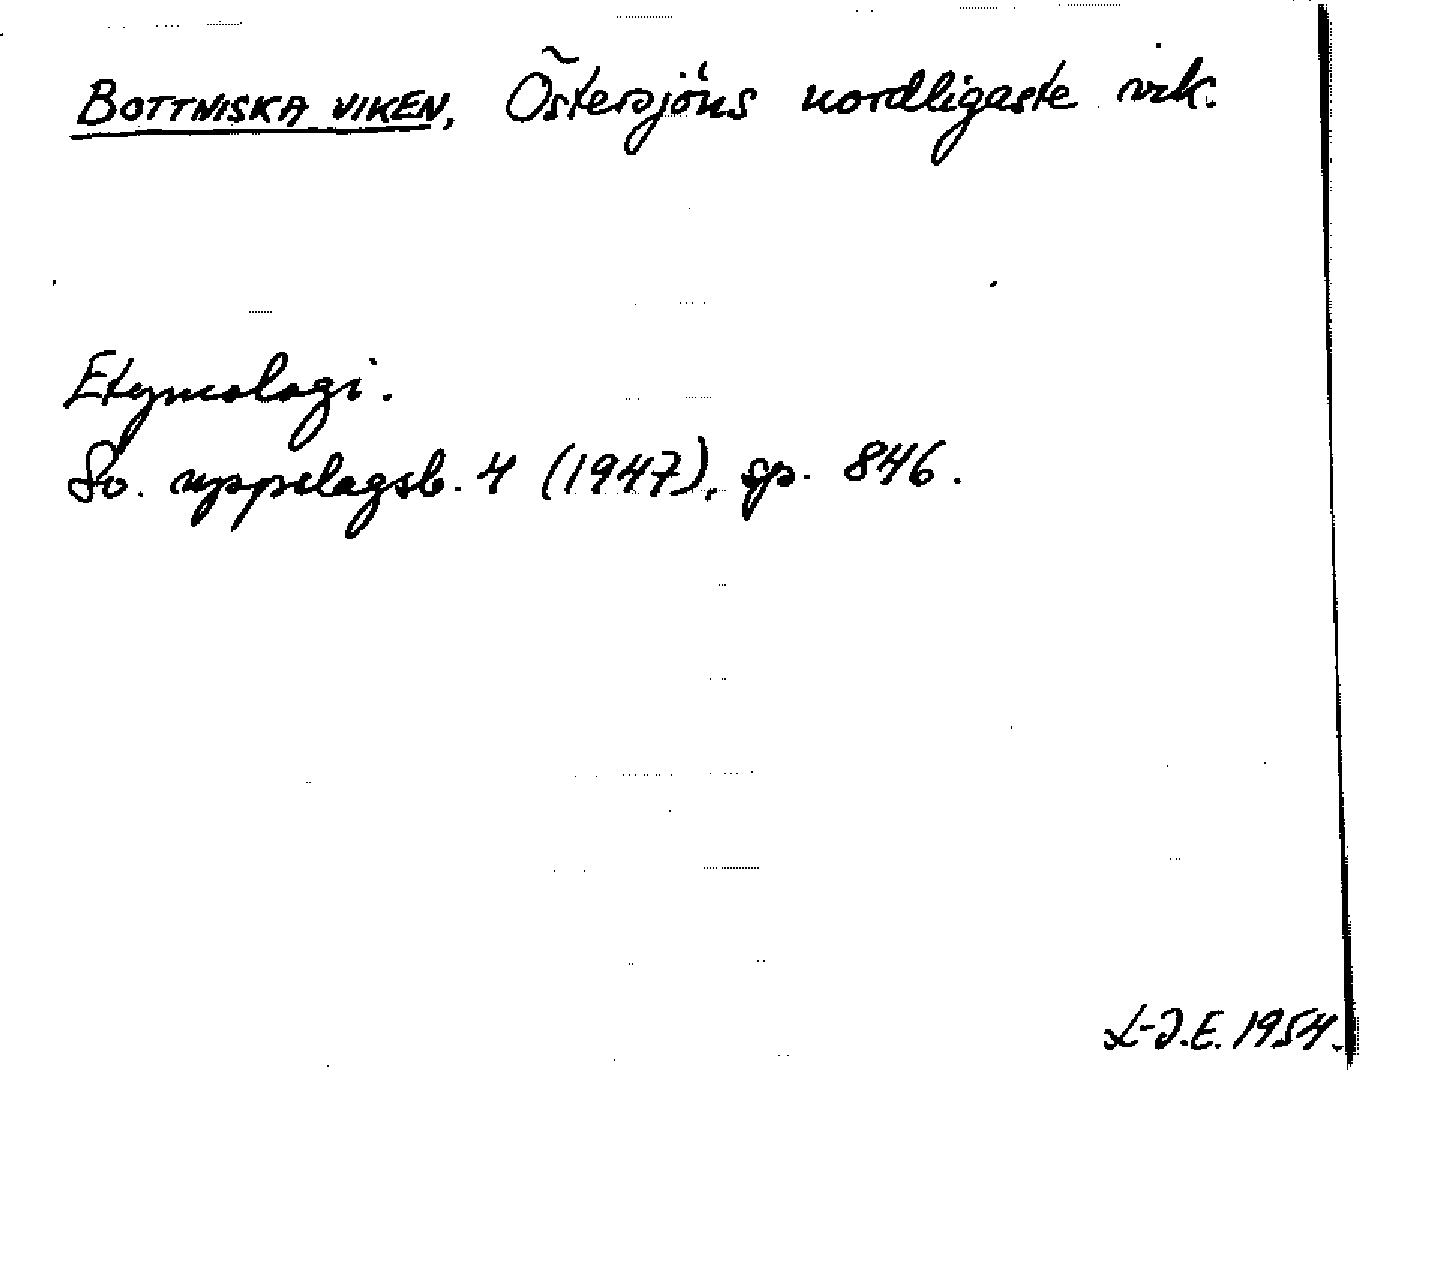 BOTTNISKA VIKEN, Östersjöns nordligaste vik.
Etymologi.
Sv. uppslagsb. 4 (1947), sp. 846.
L-J.E. 1954.